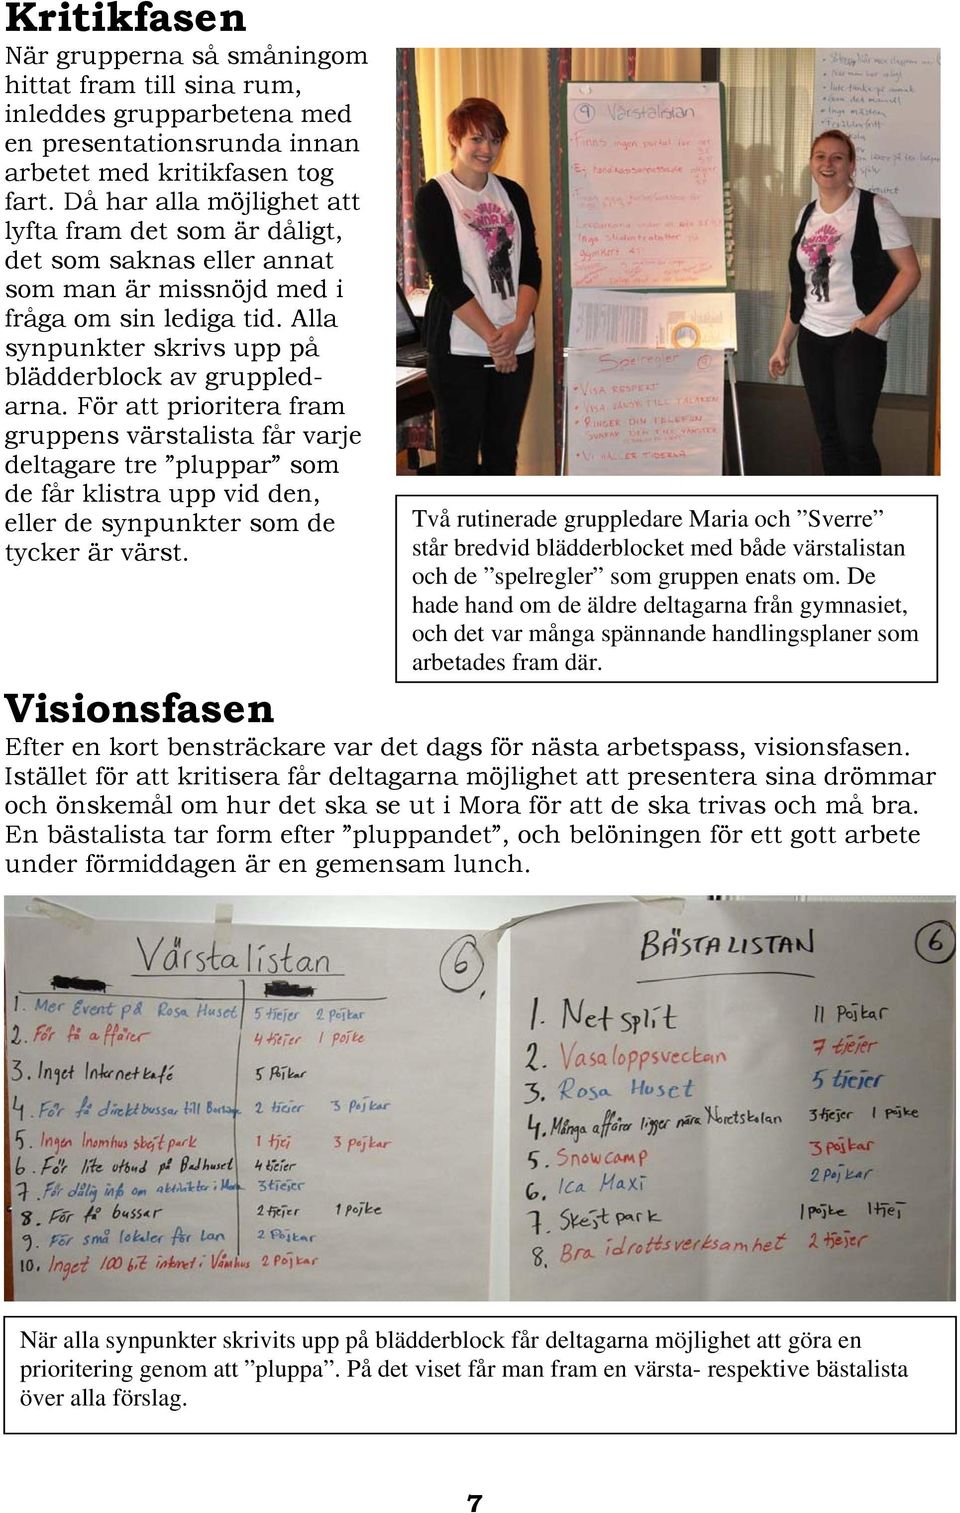 Kritikfasen
När grupperna så småningom
hittat fram till sina rum,
inleddes grupparbetena med
en presentationsrunda innan
arbetet med kritikfasen tog
fart. Då har alla möjlighet att
lyfta fram det som är dåligt,
det som saknas eller annat
som man är missnöjd med i
fråga om sin lediga tid. Alla
synpunkter skrivs upp på
blädderblock av gruppled-
arna. För att prioritera fram
gruppens värstalista får varje
deltagare tre ”pluppar” som
de får klistra upp vid den,
eller de synpunkter som de
tycker är värst.
4 Värstalistan
Finns ingen portal för
Ej handikappanpassade
Inga studentrabatter på
gymkort
Spelregler
• VISA RESPEKT
• VISA HÄNSYN TILL TALAREN
• RINGER DIN TELEFON
SVARAR DEN TVÅ VÄNSTER
• VI HÅLLER TIDERNA
Två rutinerade gruppledare Maria och ”Sverre”
står bredvid blädderblocket med både värstalistan
och de ”spelregler” som gruppen enats om. De
hade hand om de äldre deltagarna från gymnasiet,
och det var många spännande handlingsplaner som
arbetades fram där.
Visionsfasen
Efter en kort bensträckare var det dags för nästa arbetspass, visionsfasen.
Istället för att kritisera får deltagarna möjlighet att presentera sina drömmar
och önskemål om hur det ska se ut i Mora för att de ska trivas och må bra.
En bästalista tar form efter ”pluppandet”, och belöningen för ett gott arbete
under förmiddagen är en gemensam lunch.
Värstalistan 6
1. Mer Event på Rosa Huset 5 tjejer 2 pojkar
2. För få affärer 4 tjejer 1 pojke
3. Inget Internetkafé 5 Pojkar
4. För få direktbussar till Borlänge 2 tjejer 3 Pojkar
5. Ingen Inomhus skejtpark 1 tjej 3 pojkar
6. För lite utbud på Badhuset 4 tjejer
7. För dålig info om aktiviteter i Mora 3 tjejer
8. För få bussar 2 tjejer 1 pojke
9. För små lokaler för Lan 2 Pojkar
10. Inget 100 bit internet i Våmhus 2 Pojkar
BÄSTALISTAN 6
1. Netsplit 11 Pojkar
2. Vasaloppsveckan 7 tjejer
3. Rosa Huset 5 tjejer
4. Många affärer ligger nära Noretskolan 3 tjejer 1 pojke
5. Snowcamp 3 pojkar
6. Ica Maxi 2 pojkar
7. Skejtpark 1 pojke 1 tjej
8. Bra idrottsverksamhet 2 tjejer
När alla synpunkter skrivits upp på blädderblock får deltagarna möjlighet att göra en
prioritering genom att ”pluppa”. På det viset får man fram en värsta- respektive bästalista
över alla förslag.
7